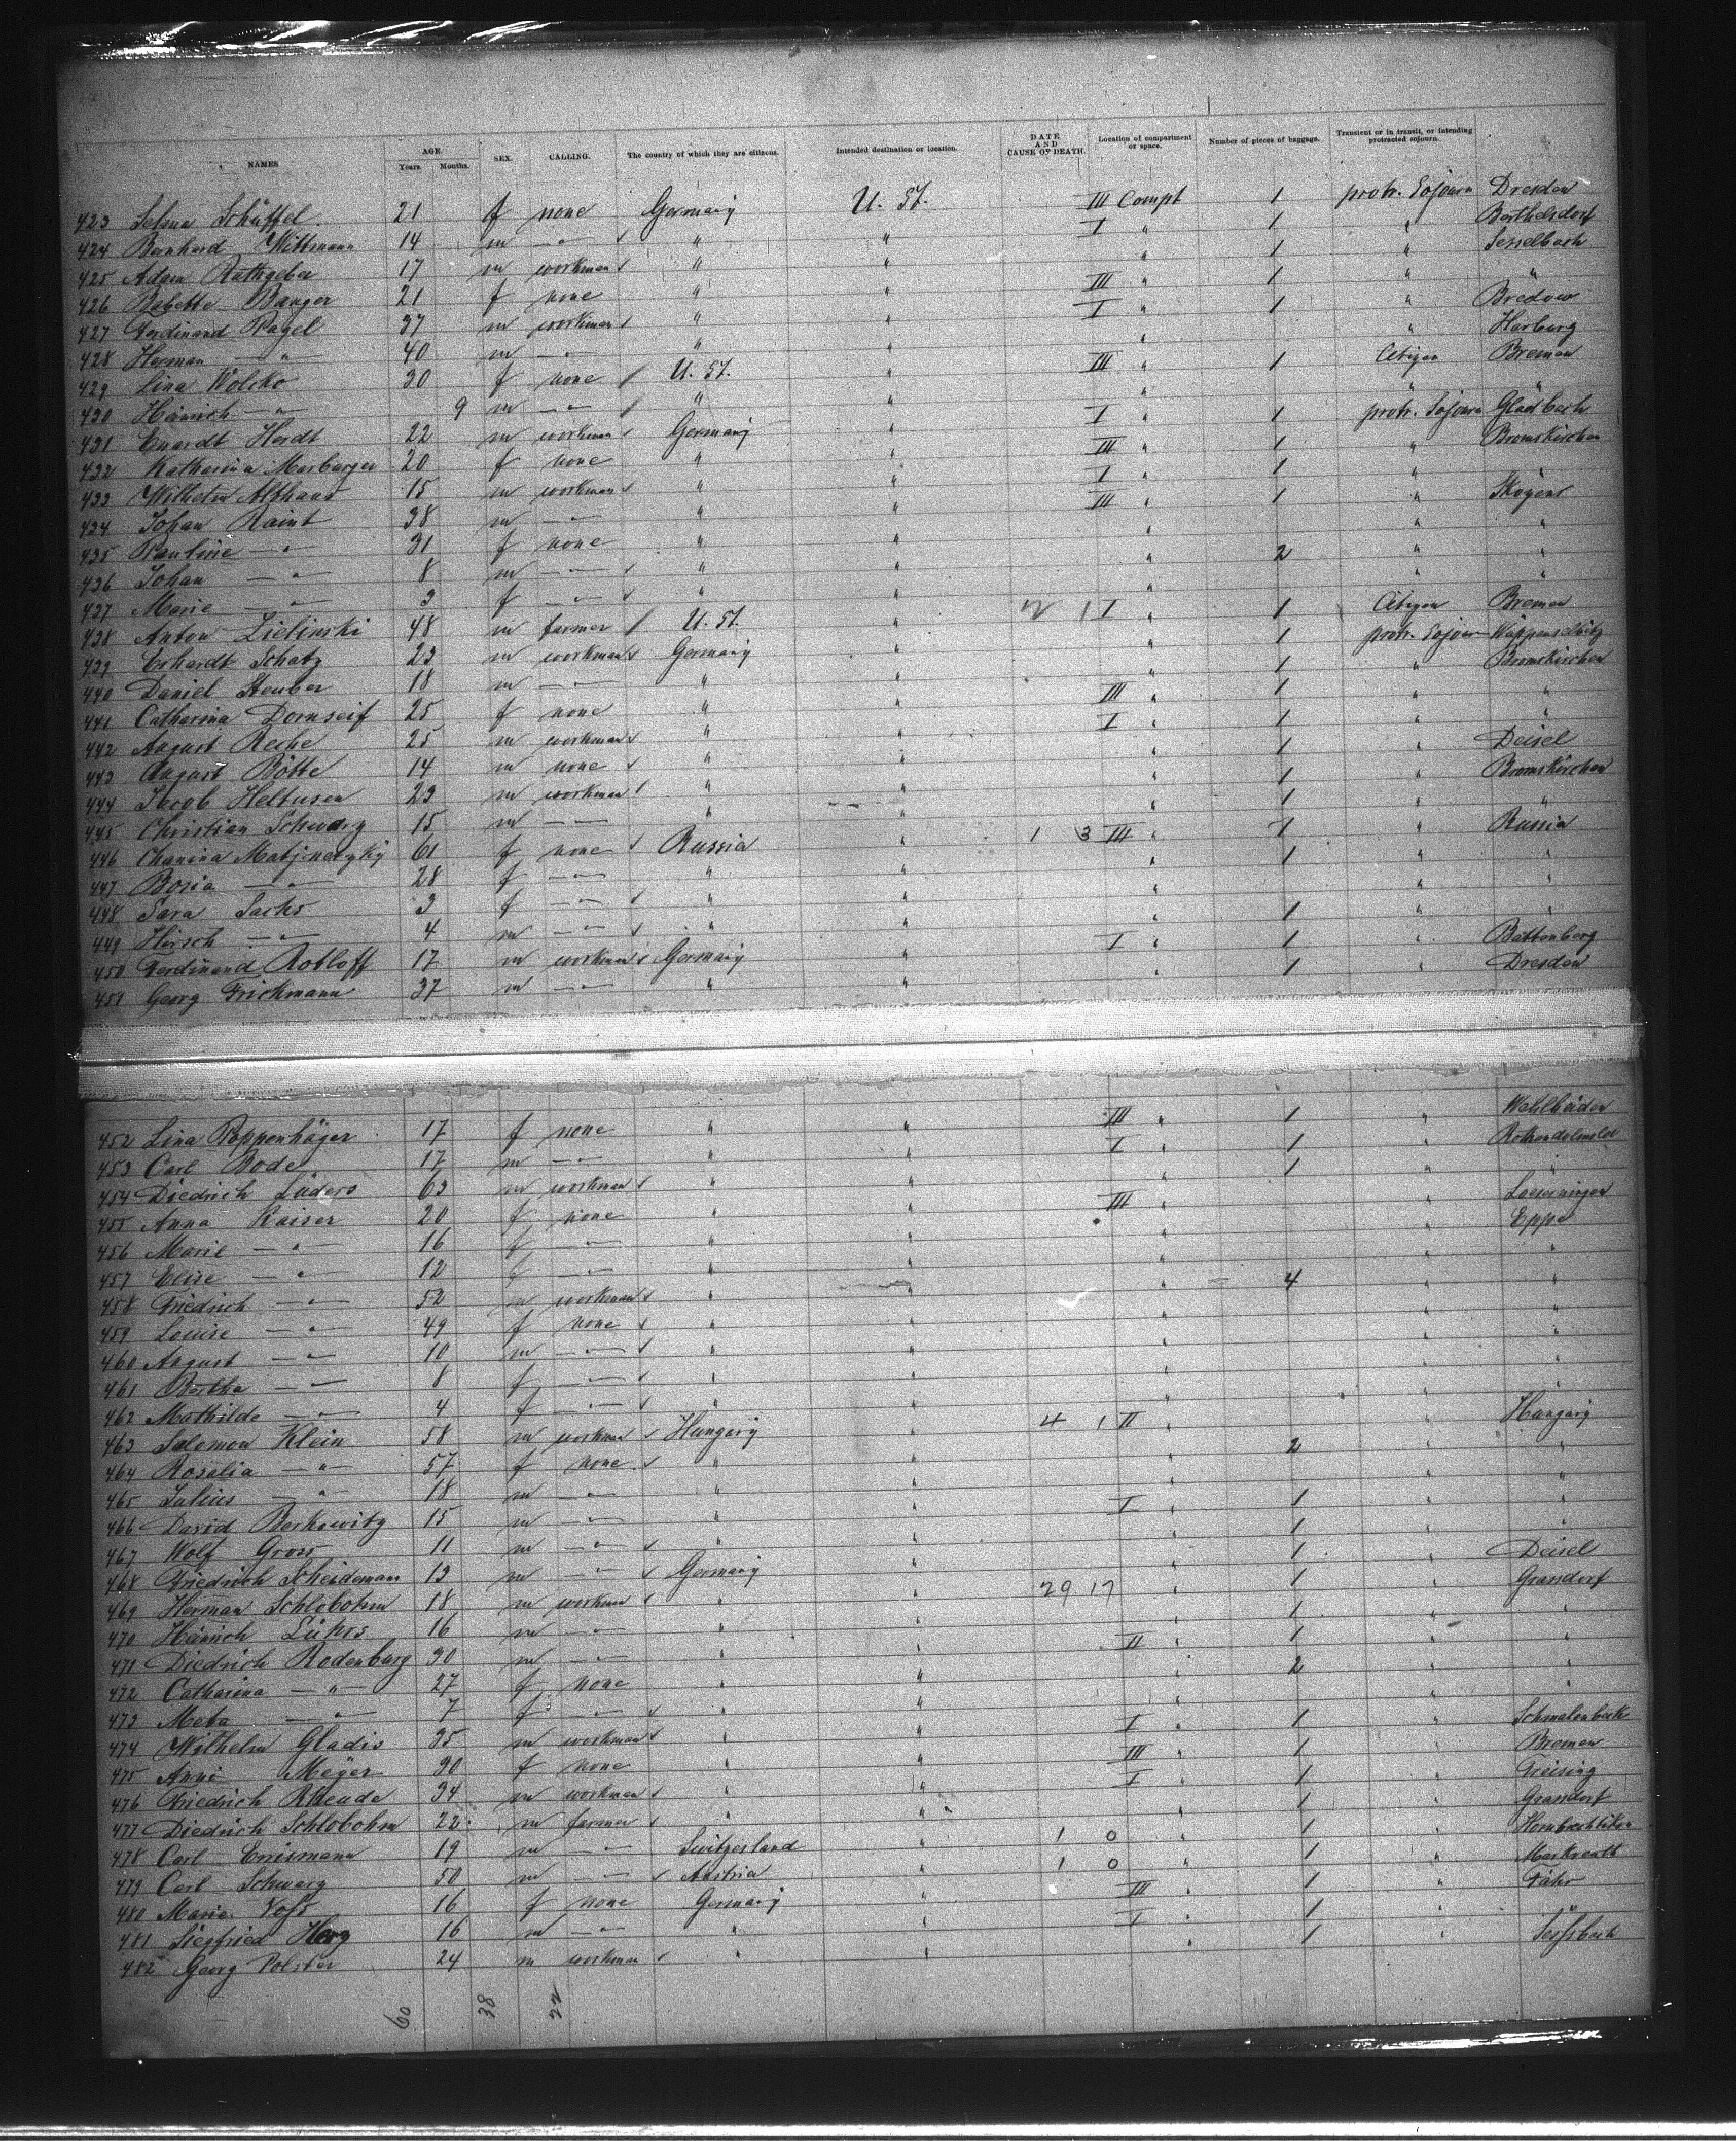 NAMES AGE. Years. Months. SEX. CALLING. The country of which they are citizens. Intended destination or location. DATE AND CAUSE OF DEATH. Location of compartment or space. Number of pieces of baggage. Transient or in transit, or intending protracted sojourn.
423 Selma Schüffel 21 f none Germany U. St. III Compt 1 protr. Sojourn Dresden
424 Bernhard Wittmann 14 m —"— " " I " 1 " Berthelsdorf
425 Adam Rathgeber 17 m workman " " " 1 " Sesselbach
426 Babette Banger 21 f none " " III " 1 " "
427 Ferdinand Pagel 37 m workman " " I " 1 " Bredow
428 Herman —"— 40 m —"— " " " " Harburg
429 Lina Wolcko 30 f none U. St. " III " 1 Citizen Bremen
430 Heinrich —"— 9 m —"— " " " " "
431 Herdt 22 m workman Germany " I " 1 protr. Sojourn Gladbach
432 Katharina Marburger 20 f none " " III " 1 " Bromskirchen
433 Wilhelm Althaus 15 m workman " " I " 1 " "
434 Johan Raint 38 m —"— " " III " 1 "
435 Pauline —"— 31 f none " " " " "
436 Johan —"— 8 m —"— " " " 2 " "
437 Marie —"— 3 f —"— " " " " "
438 Anton Zielinski 48 m farmer U. St. " 2 1 I " 1 Citizen Bremen
439 Erhardt Schatz 23 m workman Germany " " 1 protr. Sojourn
440 Daniel Steuber 18 m —"— " " " 1 " Bromskirchen
441 Catharina Dornseif 25 f none " " III " 1 " "
442 August Reche 25 m workman " " I " 1 " "
443 August Bötte 14 m none " " " 1 " Deisel
444 Jacob Heltusen 23 m workman " " " 1 " Bromskirchen
445 Christian Schwarz 15 m —"— " " " 1 " "
446 Chanina 61 f none Russia " 1 3 III " 1 " Russia
447 Bosia —"— 28 f —"— " " " 1 " "
448 Sara Sachs 3 f —"— " " " " "
449 Hirsch —"— 4 m —"— " " " 1 " "
450 Ferdinand Robloff 17 m workman Germany " I " 1 " Battenberg
451 Georg Frickmann 37 m —"— " " " 1 " Dresden
452 Lina Poppenhäger 17 f none " " III " 1 "
453 Carl Bode 17 m —"— " " I " 1 "
454 Diedrich Lüders 63 m workman " " " 1 " "
455 Anna Kaiser 20 f none " " III " "
456 Marie —"— 16 f —"— " " " " Eppe
457 Elise —"— 12 f —"— " " " " "
458 Friedrich —"— 52 m workman " " " 4 " "
459 Louise —"— 49 f none " " " " "
460 August —"— 10 m —"— " " " " "
461 Bertha —"— 8 f —"— " " " " "
462 Mathilde —"— 4 f —"— " " " " "
463 Salomon Klein 58 m workman Hungary " 4 1 II " " Hungary
464 Rosalia —"— 57 f none " " " 2 " "
465 Julius —"— 18 m —"— " " " " "
466 David Berkowitz 15 m —"— " " I " 1 " "
467 Wolf Gross 11 m —"— " " " 1 " "
468 Friedrich Scheideman 13 m —"— Germany " " 1 " Deisel
469 Herman Schlobohm 18 m workman " " 29 17 " 1 " Grasdorf
470 Heinrich Lüprs 16 m —"— " " " 1 " "
471 Diedrich Rodenburg 30 m —"— " " II " 1 " "
472 Catharina —"— 27 f none " " " 2 " "
473 Meta —"— 7 f —"— " " " " "
474 Wilhelm Gladis 35 m workman " " I " 1 " Schmalenbeck
475 Anni Meÿer 30 f none " " III " 1 " Bremen
476 Friedrich Rheude 34 m workman " " I " 1 " Freising
477 Diedrich Schlobohm 22 m farmer " " " 1 " Grasdorf
478 Carl Ernismann 19 m —"— Switzerland " 1 0 " 1 "
479 Carl Schwarz 50 m —"— Austria " 1 0 " 1 " Markreuth
480 Maria Voss 16 f none Germany " III " 1 " Fähr
481 Siegfried Herz 16 m —"— " " I " 1 " "
482 Georg Polster 24 m workman " " " 1 "
60 38 22